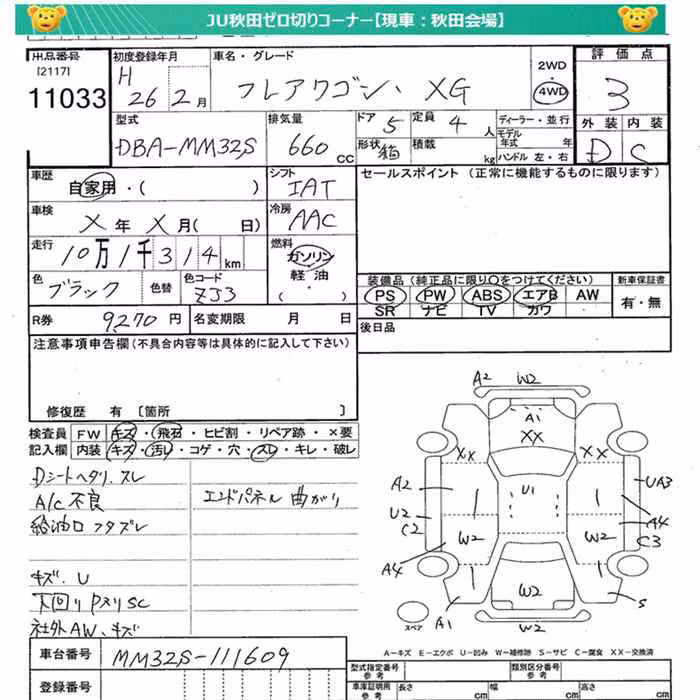 JU秋田ゼロ切りコーナー【現車：秋田会場】
出品番号 初度登録年月 車名・グレード 評価点
[2117] 11033
H 26年 2月 フレアワゴン、XG 2WD 4WD 3
外装 内装
D C
型式 排気量 ドア 5 定員 4人 ディーラー・並行
DBA-MM32S 660cc 形状 箱 積載 kg モデル年式 年
ハンドル 左・右
車歴 シフト セールスポイント（正常に機能するものに限ります）
自家用・（ ） IAT
車検 X年 X月（ 日） 冷房 AAC
走行 10万1千314km 燃料 ガソリン 軽油・（ ）
色 ブラック 色替 色コード ZJ3
装備品（純正品に限り〇をつけてください） 新車保証書
PS PW ABS エアB AW 有・無
SR ナビ TV カワ
R券 9,270円 名変期限 月 日 後日品
注意事項申告欄（不具合内容等は具体的に記入して下さい）
修復歴 有 〔箇所 〕
検査員 FW キズ・飛石・ヒビ割・リペア跡・×要
記入欄 内装 キズ・汚レ・コゲ・穴・スレ・キレ・破レ
Dシートヘタリ、スレ
A/C不良 エンドパネル曲がり
給油口フタズレ
キズ、U
下回りPスリSC
社外AW、キズ
A2 W2
A1
XX
XX XX
A2 U1 UA3
U2 C2 A4 C3
W2 W2
A4
W2
A1 S
W2
スペア
A－キズ E－エクボ U－凹み W－補修跡 S－サビ C－腐食 XX－交換済
車台番号 MM32S-111609
登録番号
型式指定番号 参考 類別区分番号 参考
車庫証明用 参考 長さ cm 幅 cm 高さ cm